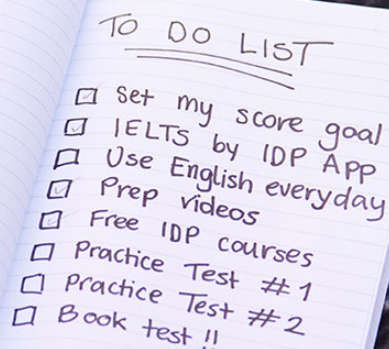 TO DO LIST
Set my score goal
IELTS by IDP App
Use English everyday
Prep videos
Free IDP courses
Practice Test #1
Practice Test #2
Book test!!